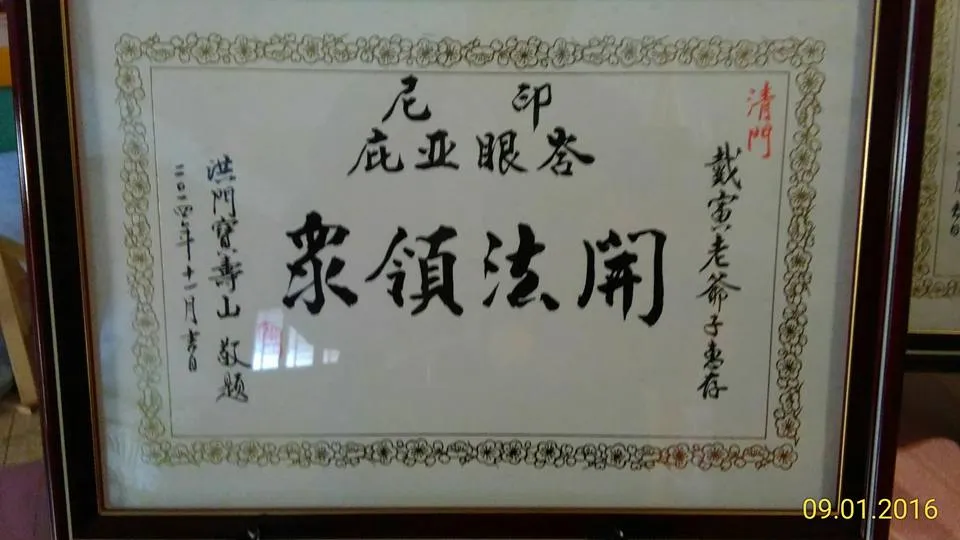 清門
戴寅老爺子惠存
印尼
峇眼亚庇
開法領衆
洪門寶壽山 敬題
二〇一四年十一月吉日
09.01.2016